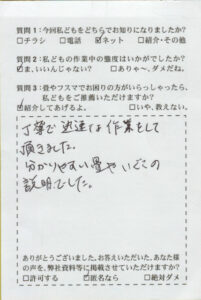 質問1：今回私どもをどちらでお知りになりましたか？
□チラシ　□電話　☑ネット　□紹介・その他
質問2：私どもの作業中の態度はいかがでしたか？
☑ま、いいんじゃない？　□ありゃ～、ダメだね。
質問3：畳やフスマでお困りの方がいらっしゃったら、
私どもをご推薦いただけますか？
☑紹介してあげるよ。　□いや、教えない。
丁寧で迅速な作業をして
頂きました。
分かりやすい畳や
説明でした。
ありがとうございました。お答えいただいた、あなた様
の声を、弊社資料等に掲載させていただけますか？
□許可する　☑匿名なら　□絶対ダメ